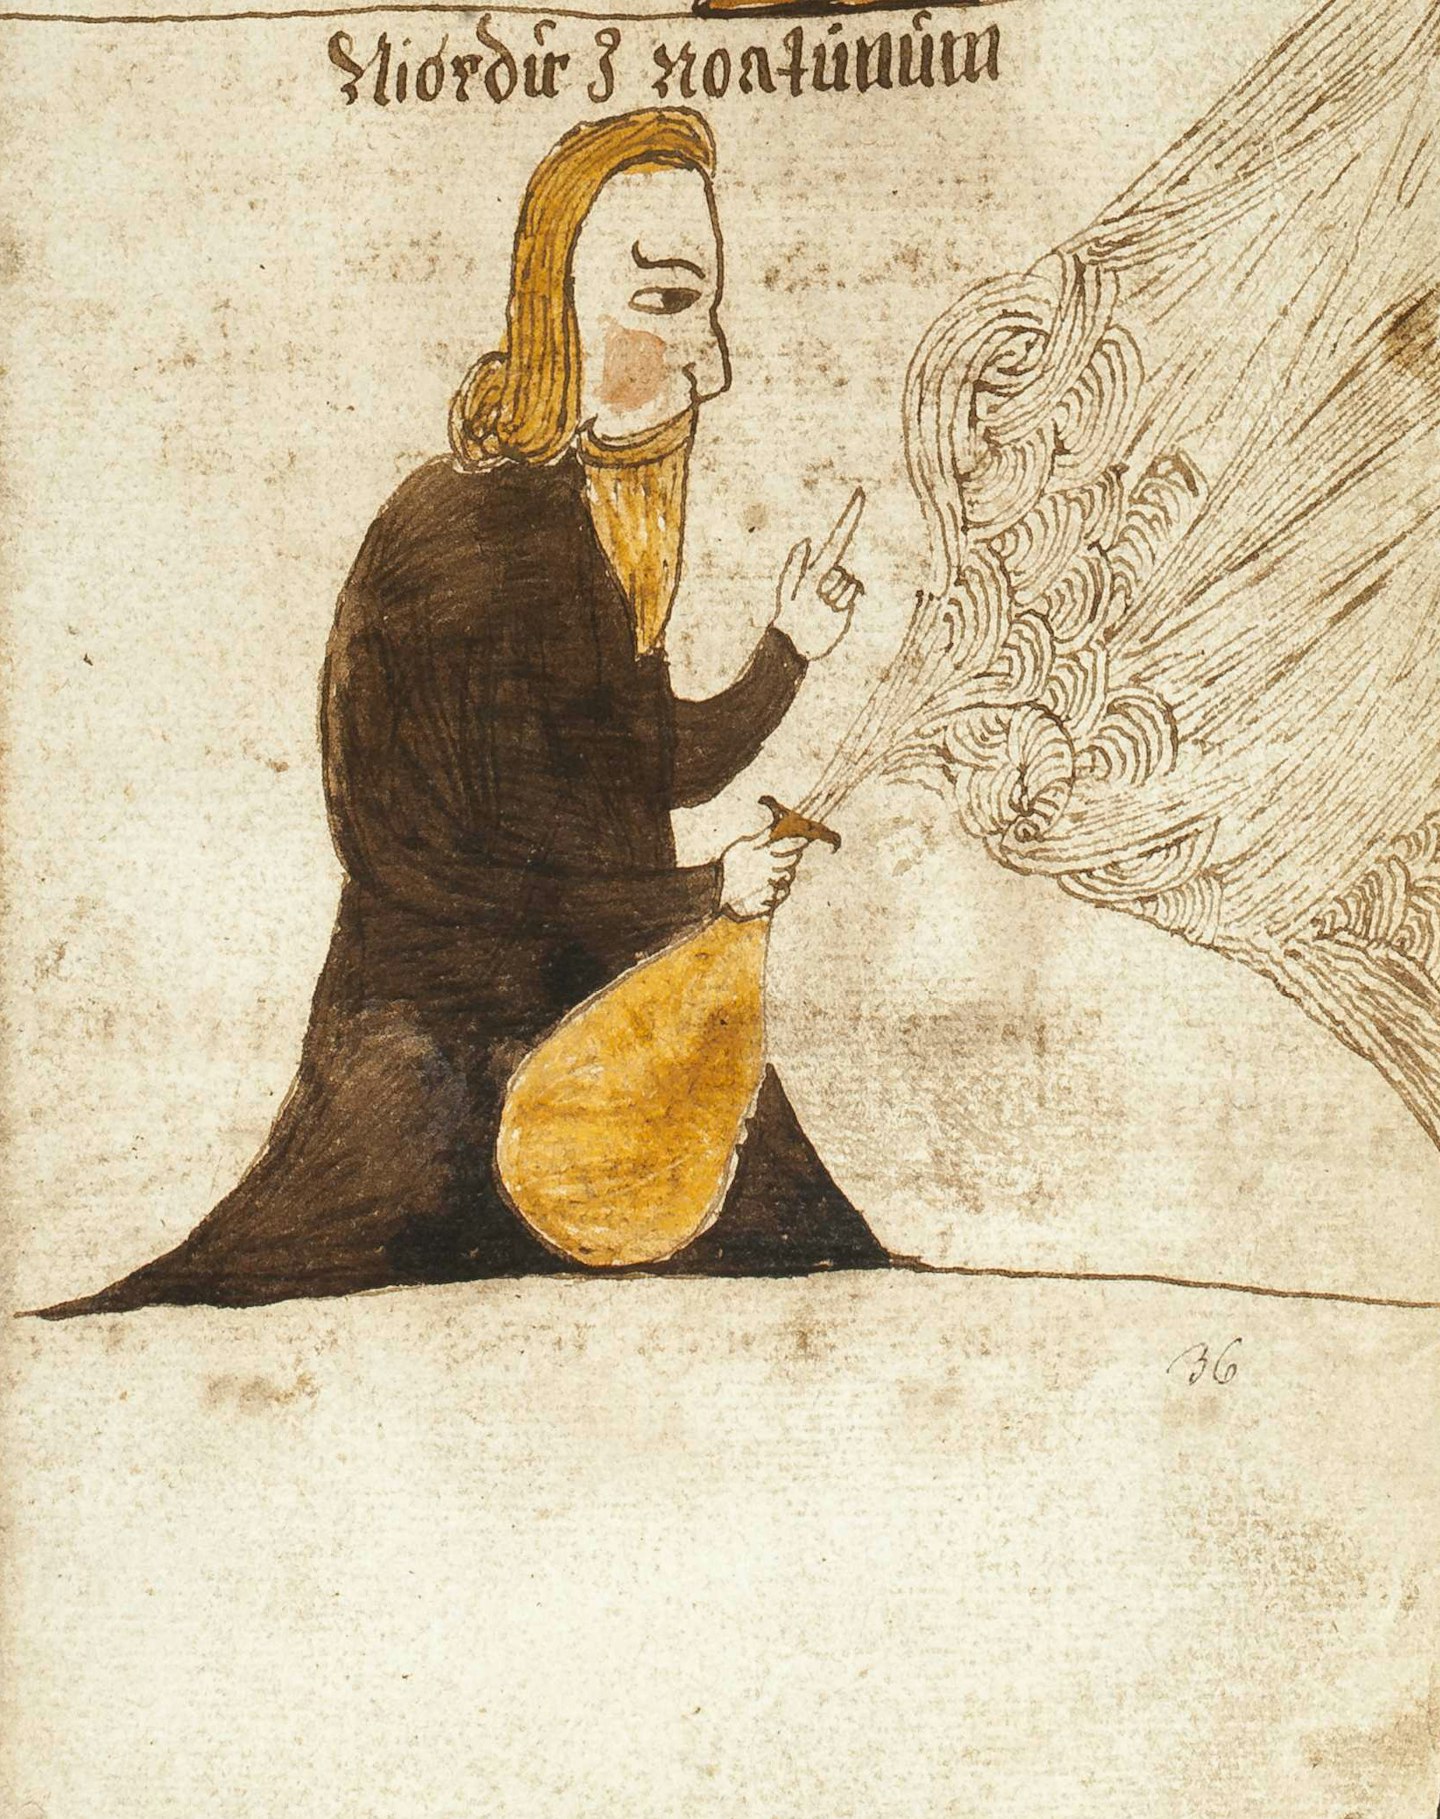 Niordur ȝ noatunum
36